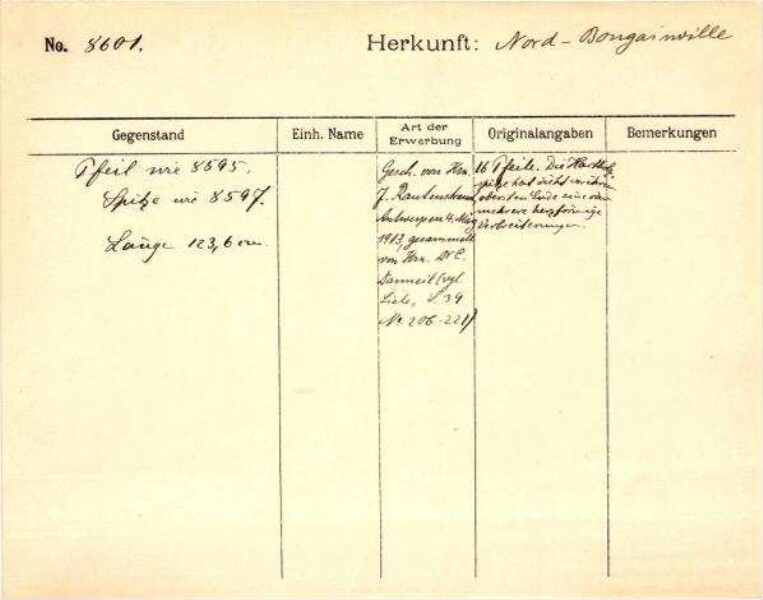 No. 8601. Herkunft: Nord-Bougainville
Gegenstand Einh. Name Art der Erwerbung Originalangaben Bemerkungen
Pfeil wie 8595.
Spitze wie 8597.
Länge 123,6 cm.
Gesch. von Hrn.
J. Rautenstrauch
Antwerpen 4. März
1913, gesammelt
von Hrn. Dr C.
Danneil (vgl.
Liste, S. 39
Nr. 206-221)
16 Pfeile. Die Hartholz
spitze hat dicht
obersten Ende eine oder
mehrere herzförmige
Verbreiterungen.